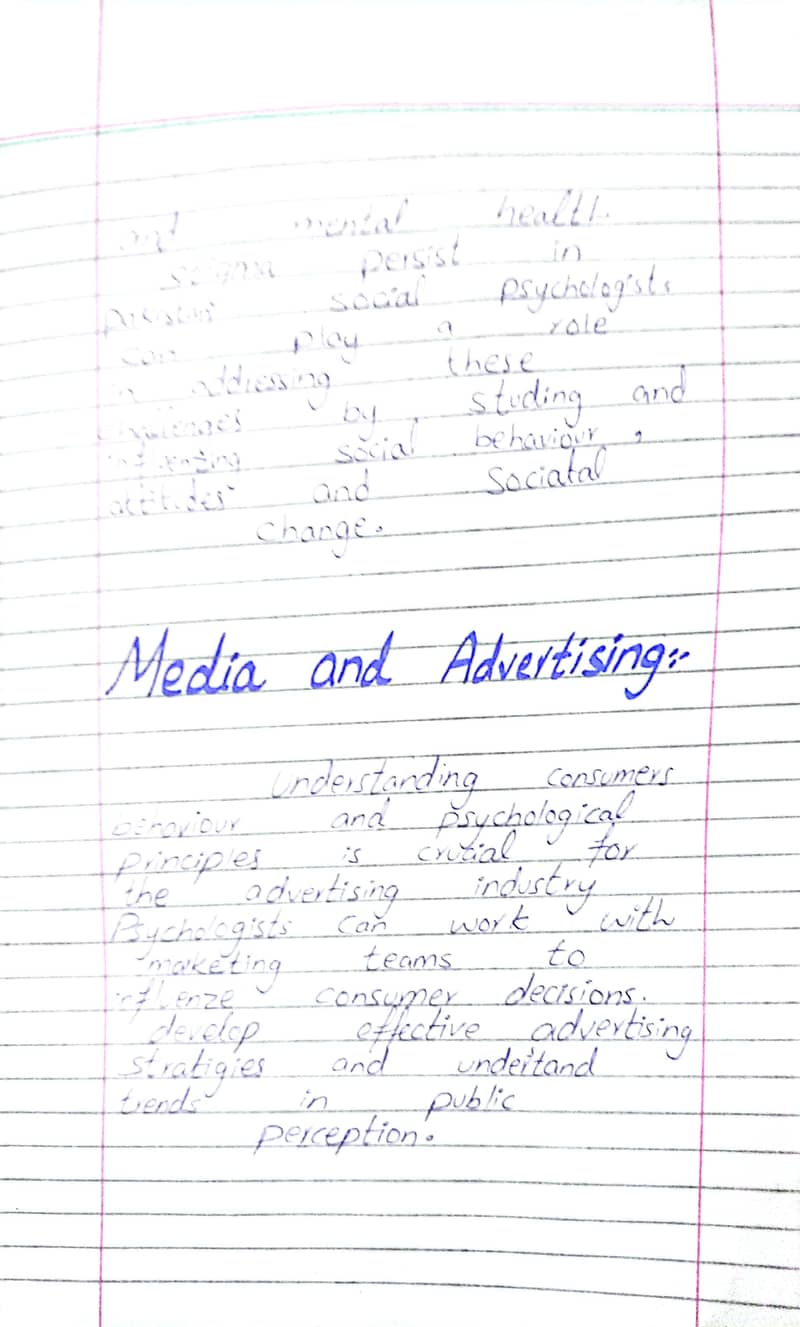 and mental health
stigma persist in
pakistan social psychologists
can play a role
in addressing these
challenges by, studing and
influenzing social behaviour,
attitudes and Sociatal
change.
Media and Advertising:-
Understanding consumers
behaviour and psychological
principles is crutial for
the advertising industry
Psychologists can work with
marketing teams to
influenze consumer decisions.
develop effective advertising
stratigies and undertand
trends in public
perception.